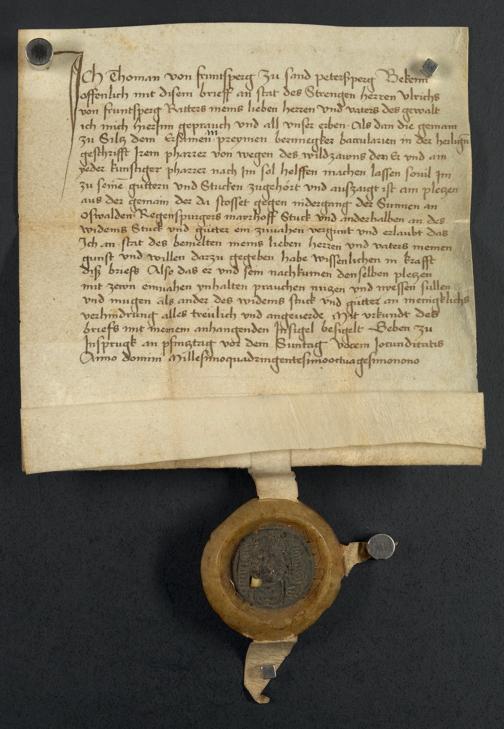 Ich Thoman von fruntsperg zu sand petersperg Bekenn
offenlich mit disem brieff an stat des Strengen herren Ulrichs
von fruntsperg Ritters meins lieben herren und vaters des gewalt
ich mich hierinn geprauch und all unser erben Als dan die gemain
zu Silz dem Ersamen preymen bernnegker baccularien in der heiligen
geschrifft Irem pharrer von wegen des wildzauns den Er und ain
yeder kunftiger pharrer nach im sol helffen machen lassen sovil im
zu seinen guttern und Stucken zugehört und auszaigt ist ain pletzen
aus der gemain der da stosset gegen nidergang der Sunnen an
Oswalden Regenspurgers marzhoff Stuck und anderhalben an des
widems Stuck und gütter ein zuvahen vergunt und erlaubt das
Ich an stat des bemelten meins lieben herren und vaters meinen
gunst und willen darzu gegeben habe wissenlichen in krafft
diß briefs Also das er und sein nachkumen denselben pletzen
mit zewn einvahen ynhalten prauchen nutzen und niessen sullen
und mugen als ander des widems stuck und gütter an menigklichs
verhindrung alles treulich und angeverde Mit urkundt des
briefs mit meinem anhangenden Insigel besigelt Geben zu
Insprugk an phintztag vor dem Suntag Vocem Jocunditatis
Anno domini Millesimoquadringentesimooctuagesimonono